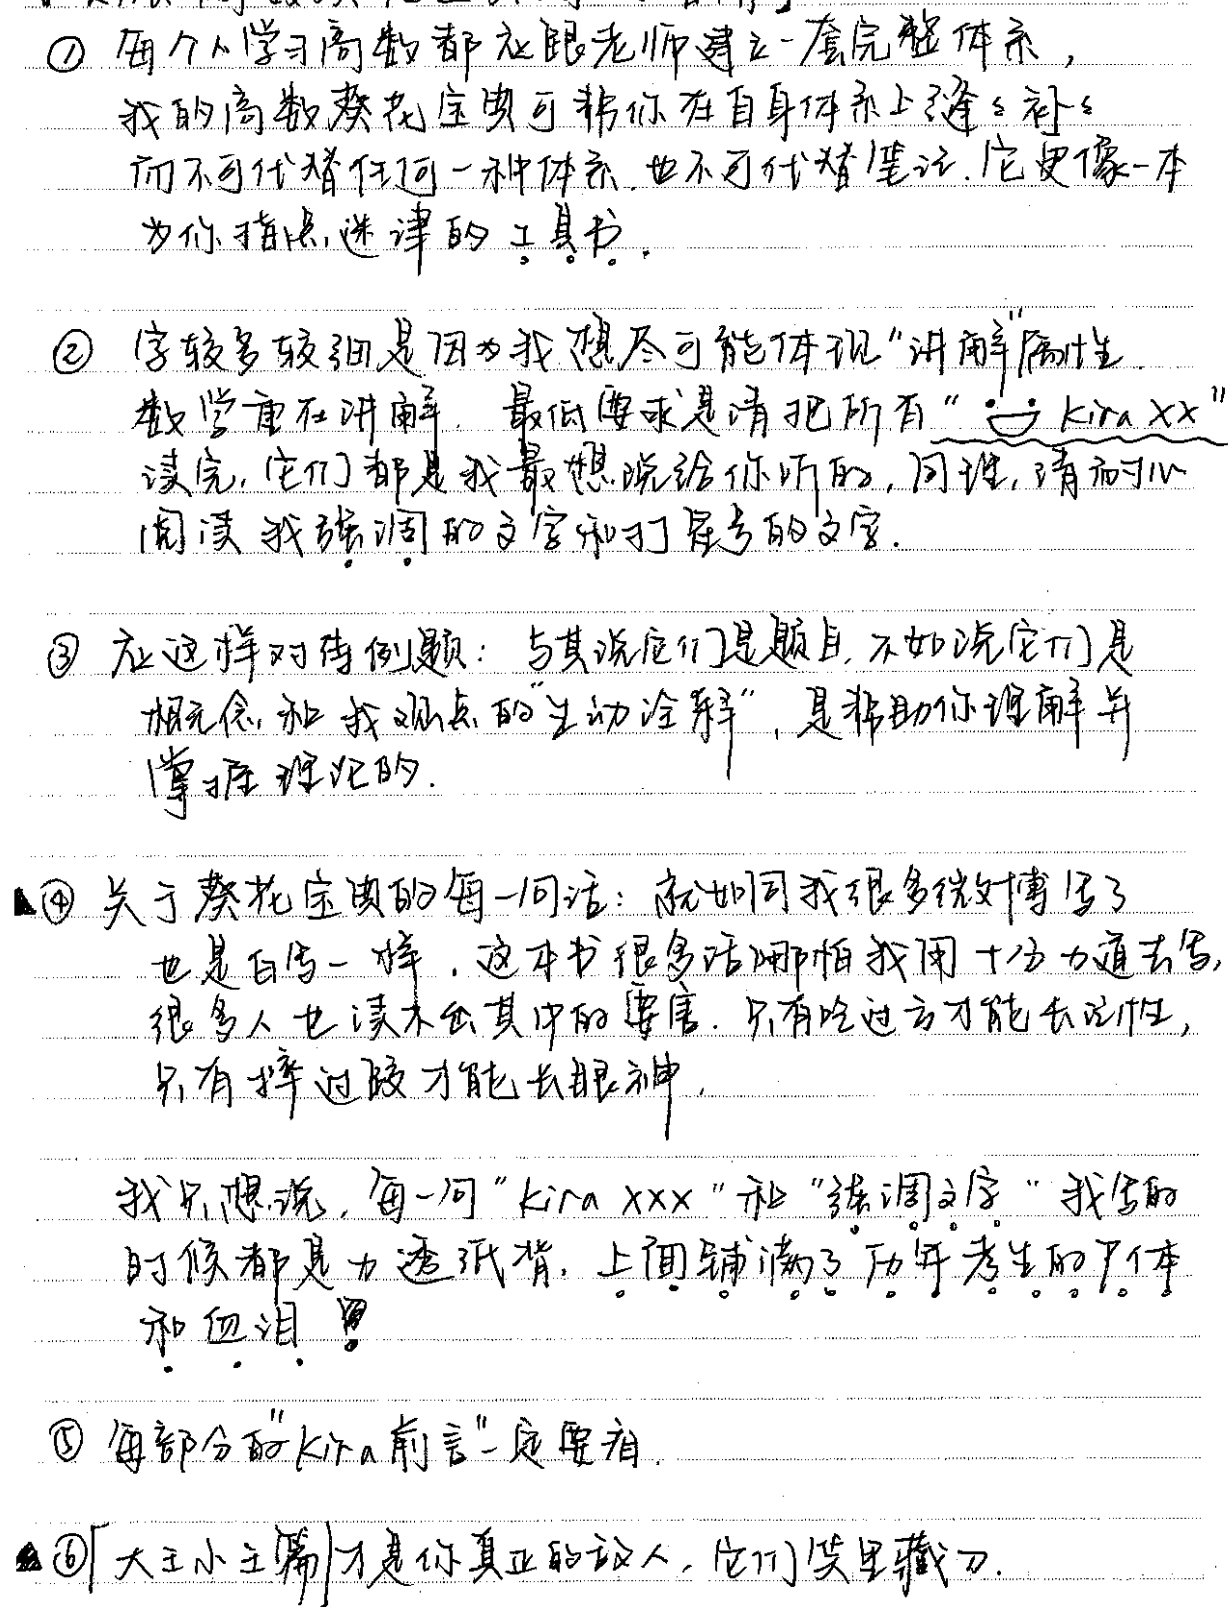 ① 每个人学习高数都应跟老师建立一套完整体系，
我的高数葵花宝典可帮你在自身体系上缝缝补补
而不可代替任何一种体系.也不可代替笔记.它更像一本
为你指点迷津的工具书.
② 字较多较细是因为我想尽可能体现"讲解"属性.
数学重在讲解. 最低要求是请把所有"Kira XX"
读完,它们都是我最想说给你听的,同理,请耐心
阅读我强调的文字和打星号的文字.
③ 应这样对待例题: 与其说它们是题目,不如说它们是
概念和我观点的"生动诠释",是帮助你理解并
掌握理论的.
④ 关于葵花宝典的每一句话: 就如同我很多微博写了
也是白写一样, 这本书很多话哪怕我用十分力道去写,
很多人也读不出其中的要害. 只有吃过亏才能长记性,
只有摔过跤才能长眼神.
我只想说, 每一句"Kira XXX"和"强调文字"我写的
时候都是力透纸背. 上面铺满了历年考生的尸体
和血泪!
⑤ 每部分的"Kira前言"一定要看.
⑥ 「大王小王篇」才是你真正的敌人, 它们笑里藏刀.